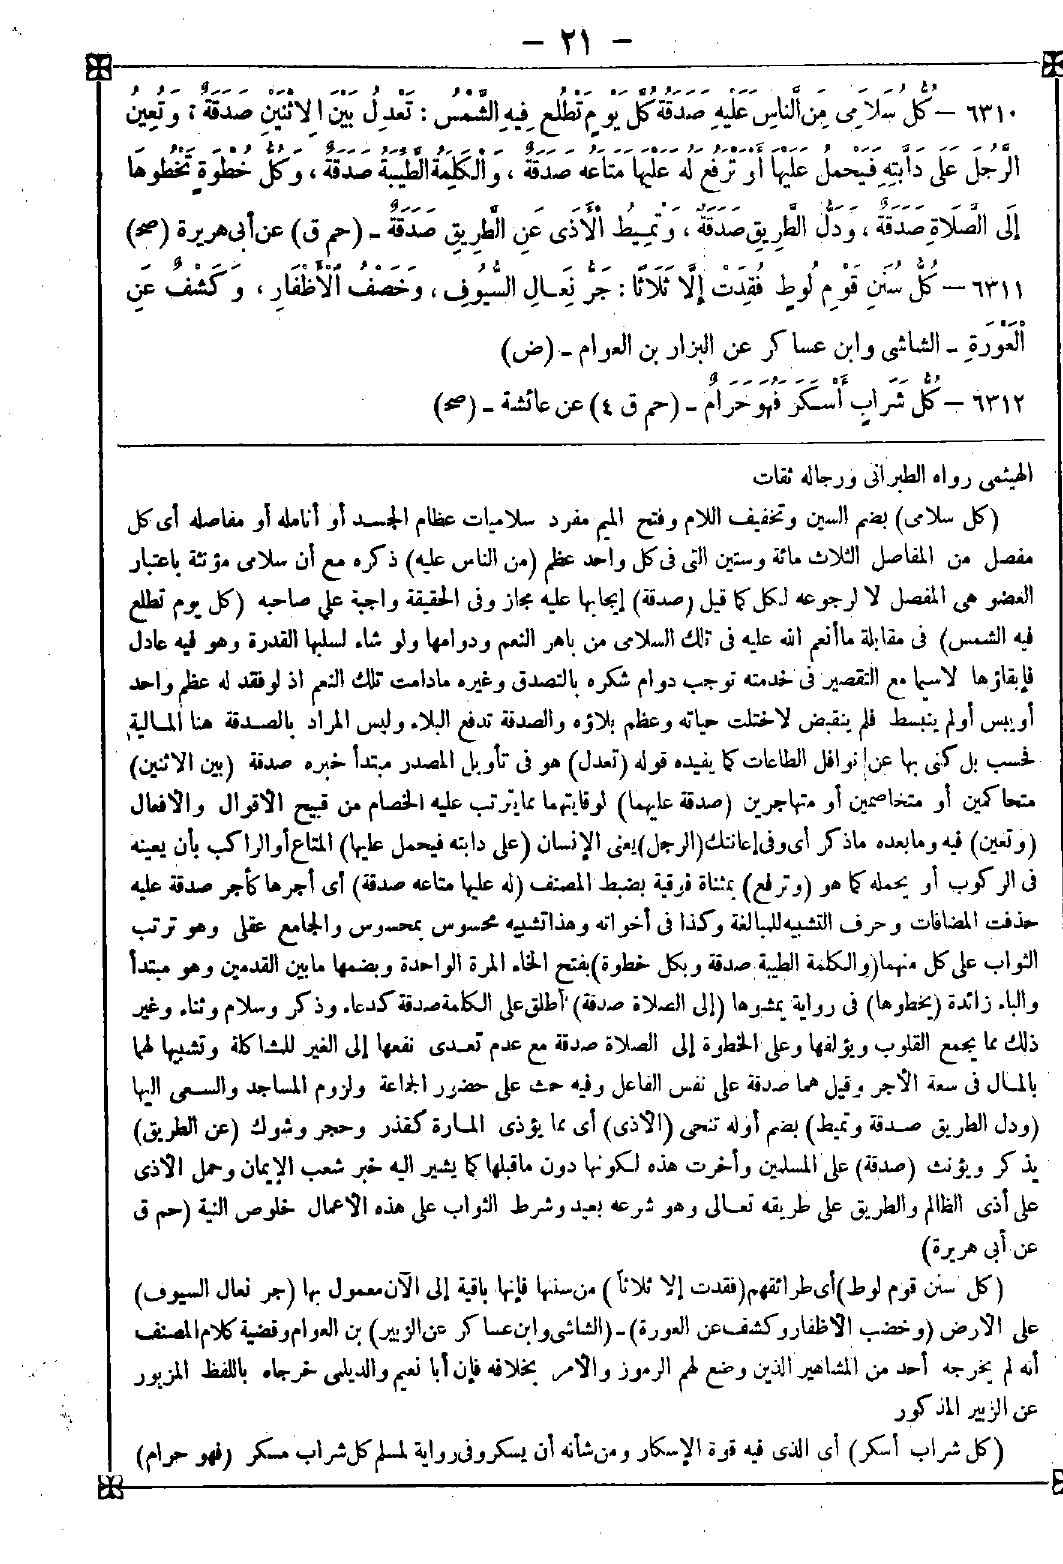 - ٢١ -
٦٣١٠ - كُلُّ سُلَامَى مِنَ النَّاسِ عَلَيْهِ صَدَقَةٌ كُلَّ يَوْمٍ تَطْلُعُ فِيهِ الشَّمْسُ : تَعْدِلُ بَيْنَ الِاثْنَيْنِ صَدَقَةٌ ، وَتُعِينُ
الرَّجُلَ عَلَى دَابَّتِهِ فَيَحْمِلُ عَلَيْهَا أَوْ تَرْفَعُ لَهُ عَلَيْهَا مَتَاعَهُ صَدَقَةٌ ، وَالْكَلِمَةُ الطَّيِّبَةُ صَدَقَةٌ ، وَكُلُّ خُطْوَةٍ تَخْطُوهَا
إِلَى الصَّلَاةِ صَدَقَةٌ ، وَدَلُّ الطَّرِيقِ صَدَقَةٌ ، وَتُمِيطُ الْأَذَى عَنِ الطَّرِيقِ صَدَقَةٌ - (حم ق) عن أبى هريرة (صح)
٦٣١١ - كُلُّ سُنَنِ قَوْمِ لُوطٍ فُقِدَتْ إِلَّا ثَلَاثًا : جَرُّ نِعَالِ السُّيُوفِ ، وَخَصْفُ الْأَظْفَارِ ، وَكَشْفٌ عَنِ
الْعَوْرَةِ - الشاشى وابن عساكر عن البزار بن العوام - (ض)
٦٣١٢ - كُلُّ شَرَابٍ أَسْكَرَ فَهُوَ حَرَامٌ - (حم ق ٤) عن عائشة - (صح)
الهيثمى رواه الطبرانى ورجاله ثقات
(كل سلامى) بضم السين وتخفيف اللام وفتح الميم مفرد سلاميات عظام الجسد أو أنامله أو مفاصله أى كل
مفصل من المفاصل الثلاث مائة وستين التى فى كل واحد عظم (من الناس عليه) ذكره مع أن سلامى مؤنثة باعتبار
العضو هى المفصل لا لرجوعه لكل كما قيل (صدقة) إيجابها عليه مجاز وفى الحقيقة واجبة على صاحبه (كل يوم تطلع
فيه الشمس) فى مقابلة ما أنعم الله عليه فى تلك السلامى من باهر النعم ودوامها ولو شاء لسلبها القدرة وهو فيه عادل
فإبقاؤها لاسيما مع التقصير فى خدمته توجب دوام شكره بالتصدق وغيره مادامت تلك النعم اذ لو فقد له عظم واحد
أو يبس أولم ينبسط فلم ينقبض لاختلت حياته وعظم بلاؤه والصدقة تدفع البلاء وليس المراد بالصدقة هنا المالية
فحسب بل كنى بها عن نوافل الطاعات كما يفيده قوله (تعدل) هو فى تأويل المصدر مبتدأ خبره صدقة (بين الاثنين)
متحاكمين أو متخاصمين أو متهاجرين (صدقة عليهما) لوقايتهما مما يترتب عليه الخصام من قبيح الاقوال والافعال
(وتعين) فيه ومابعده ماذكر أى وفى إعانتك (الرجل) يعنى الإنسان (على دابته فيحمل عليها) المتاع أو الراكب بأن يعينه
فى الركوب أو يحمله كما هو (وترفع) بمثناة فوقية بضبط المصنف (له عليها متاعه صدقة) أى أجرها كأجر صدقة عليه
حذفت المضافات وحرف التشبيه للمبالغة وكذا فى أخواته وهذا تشبيه محسوس بمحسوس والجامع عقلى وهو ترتب
الثواب على كل منهما (والكلمة الطيبة صدقة وبكل خطوة) بفتح الخاء المرة الواحدة وبضمها مابين القدمين وهو مبتدأ
والباء زائدة (يخطوها) فى رواية يمشوها (إلى الصلاة صدقة) أطلق على الكلمة صدقة كدعاء وذكر وسلام وثناء وغير
ذلك مما يجمع القلوب ويؤلفها وعلى الخطوة إلى الصلاة صدقة مع عدم تعدى نفعها إلى الغير للمشاكلة وتشبيها لهما
بالمال فى سعة الأجر وقيل هما صدقة على نفس الفاعل وفيه حث على حضور الجماعة ولزوم المساجد والسعى اليها
(ودل الطريق صدقة وتميط) بضم أوله تنحى (الاذى) أى مما يؤذى المارة كقذر وحجر وشوك (عن الطريق)
يذكر ويؤنث (صدقة) على المسلمين وأخرت هذه لكونها دون ماقبلها كما يشير اليه خبر شعب الإيمان وحمل الاذى
على أذى الظالم والطريق على طريقه تعالى وهو شرعه بعيد وشرط الثواب على هذه الاعمال خلوص النية (حم ق
عن أبى هريرة)
(كل سنن قوم لوط) أى طرائقهم (فقدت إلا ثلاثا) من سننها فإنها باقية إلى الآن معمول بها (جر نعال السيوف)
على الارض (وخضب الاظفار وكشف عن العورة) - (الشاشى وابن عساكر عن الزبير) بن العوام وقضية كلام المصنف
أنه لم يخرجه أحد من المشاهير الذين وضع لهم الرموز والامر بخلافه فإن أبا نعيم والديلمى خرجاه باللفظ المزبور
عن الزبير المذكور
(كل شراب أسكر) أى الذى فيه قوة الإسكار ومن شأنه أن يسكر وفى رواية لمسلم كل شراب مسكر (فهو حرام)